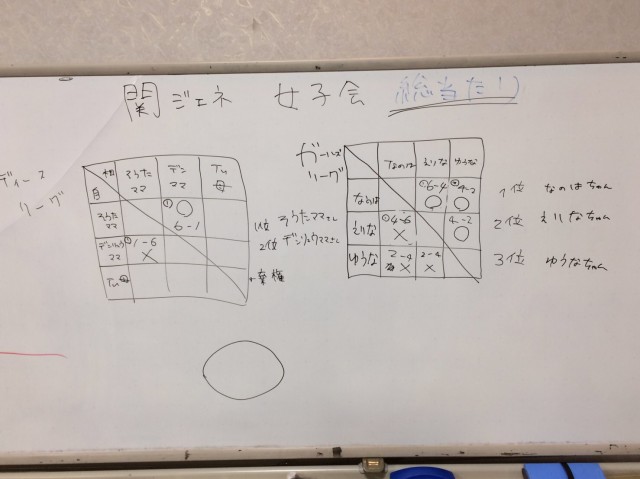 関ジェネ 女子会 総当たり
ディース
リーグ
相 そうた ママ デン ママ Tu 母
自
そうた ママ ① ○ 6-1
デンリュウ ママ ① 1-6 ×
Tu 母
1位 そうたママさん
2位 デンリュウママさん
棄権
ガールズ
リーグ
なのは えりな ゆうな
なのは 6-4 ○ 4-2 ○
えりな 4-6 × 4-2 ○
ゆうな 2-4 × 2-4 ×
1位 なのはちゃん
2位 えりなちゃん
3位 ゆうなちゃん